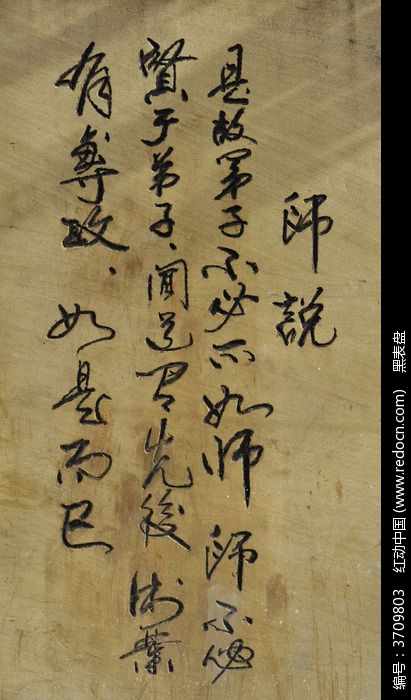 師說
是故弟子不必不如師 師不必
賢于弟子、聞道有先後 術業
有專攻、如是而已
编号:3709803 红动中国 (www.redocn.com) 黑表盘